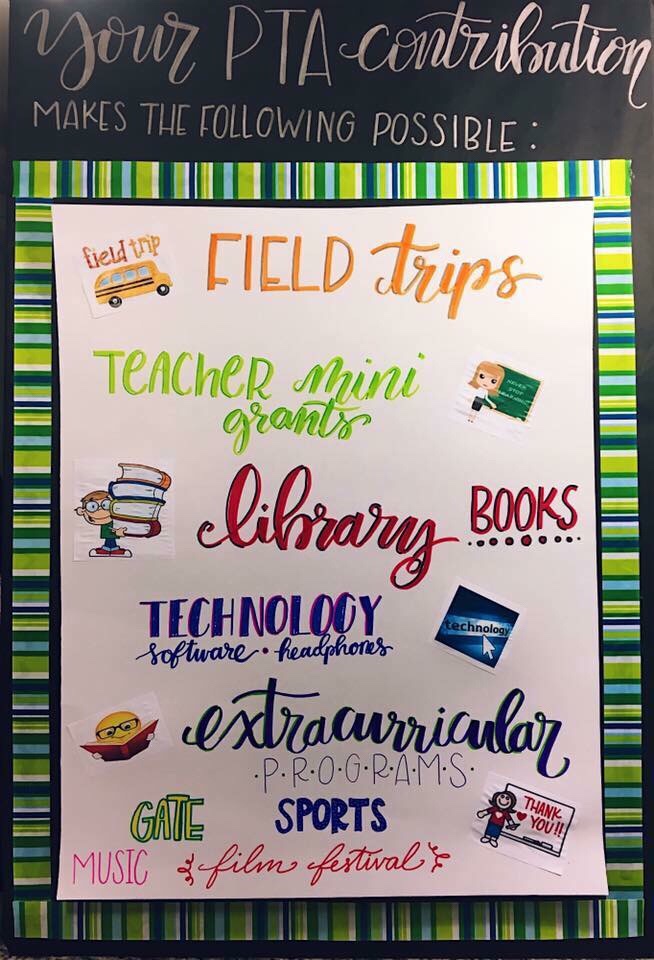 your PTA contribution
MAKES THE FOLLOWING POSSIBLE:
field trip
FIELD trips
TEACHER mini
grants
NEVER
STOP
LEARNING
library BOOKS
TECHNOLOGY
software • headphones
technology
extracurricular
P·R·O·G·R·A·M·S
GATE SPORTS
THANK
YOU!!
MUSIC film festival